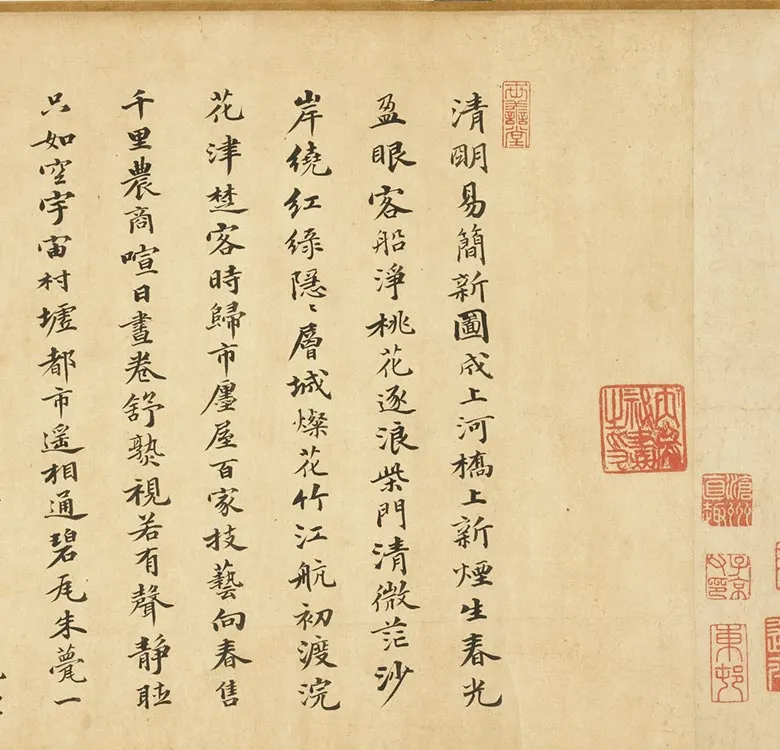 清明易簡新圖成上河橋上新煙生春光
盈眼客船淨桃花逐浪柴門清微茫沙
岸繞紅綠隱〻層城燦花竹江航初渡浣
花津楚客時歸市廛屋百家技藝向春售
千里農商喧日晝卷舒熟視若有聲靜眡
只如空宇宙村墟都市遥相通碧瓦朱甍一
滄州
東邨